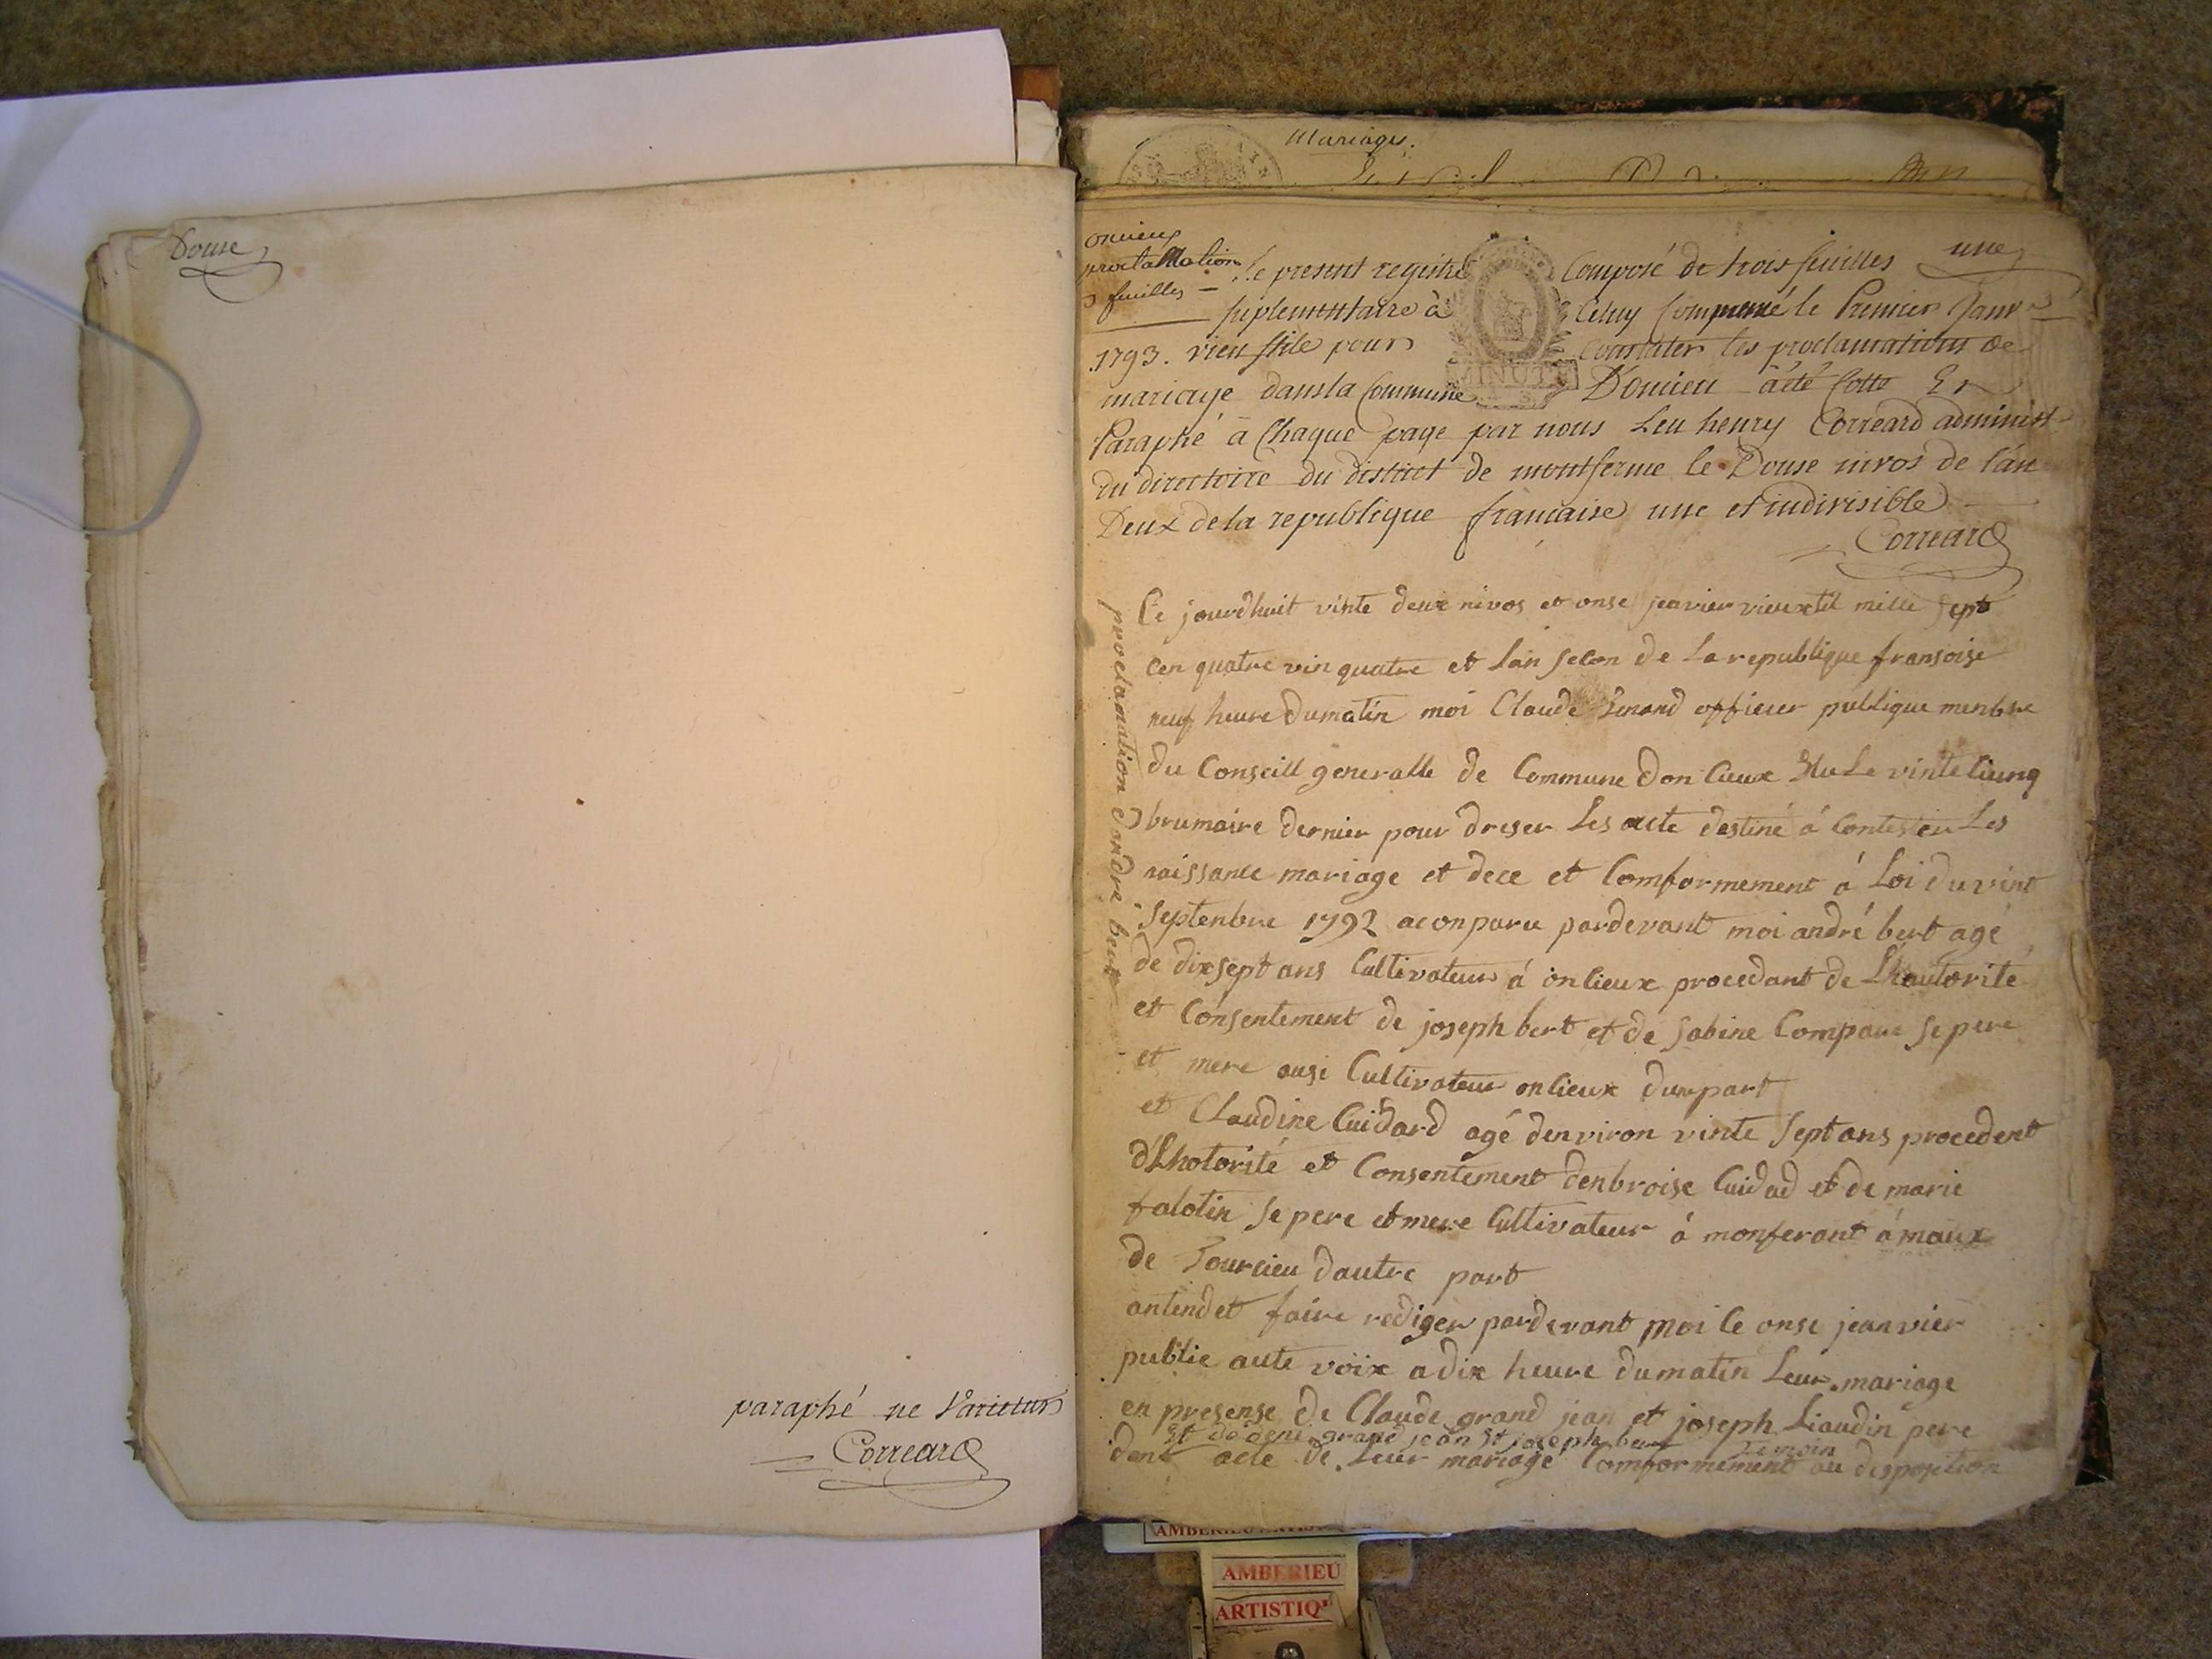 Douse
paraphé ne Varietur
Correard
Mariages.
oncieux
proclamation
3 feuilles
une
Le present registre Composé de trois feuilles
suplementaire à Celuy Commencé le Premier Janv
1793. vieu stile pour Constater les proclamations de
mariage dans la Commune D'oncieu a été Cotté Et
Paraphé à Chaque page par nous Leu henry Correard administ
du directoire du district de montferme le Douse nivos de l'an
Deux de la republique francaise une et indivisible
Correard
proclamation dandré bert
Ce jourdhuit vinte deux nivos et onse jeanvier vieux til mille sept
cen quatre vin quatre et lan selon de La republique fransoise
neuf heure du matin moi Claude officier publique menbre
du Conseill generalle de Commune don Cieux Elu Le vinte Ciunq
brumaire dernier pour dreser Les acte destiné á Contester Les
naissance mariage et dece et Comformement á Loi du vint
Septenbre 1792 aconparu pardevant moi andré bert agé
de dix sept ans Cultivateur á onlieux procedant de Lhautorité
et Consentement de joseph bert et de Sabine Compare se pere
et mere ausi Cultivateur onlieux dunpart
et Claudine Cuidard agé denviron vinte Sept ans procedent
dLhotorité et Consentement denbroise Cuidad et de marie
falotin se pere et mere Cultivateur á monferant á maux
de Tourcieu dautre part
antendet faire rediger pardevant moi le onse jeanvier
publie aute voix a dix heure du matin Leur mariage
en presense de Claude grand jean et joseph Liaudin pere
Et de grand jean Et joseph bert temoin
dent acte de Leur mariage Comformement au disposition
MINUTE
AMBERIEU
ARTISTIQ